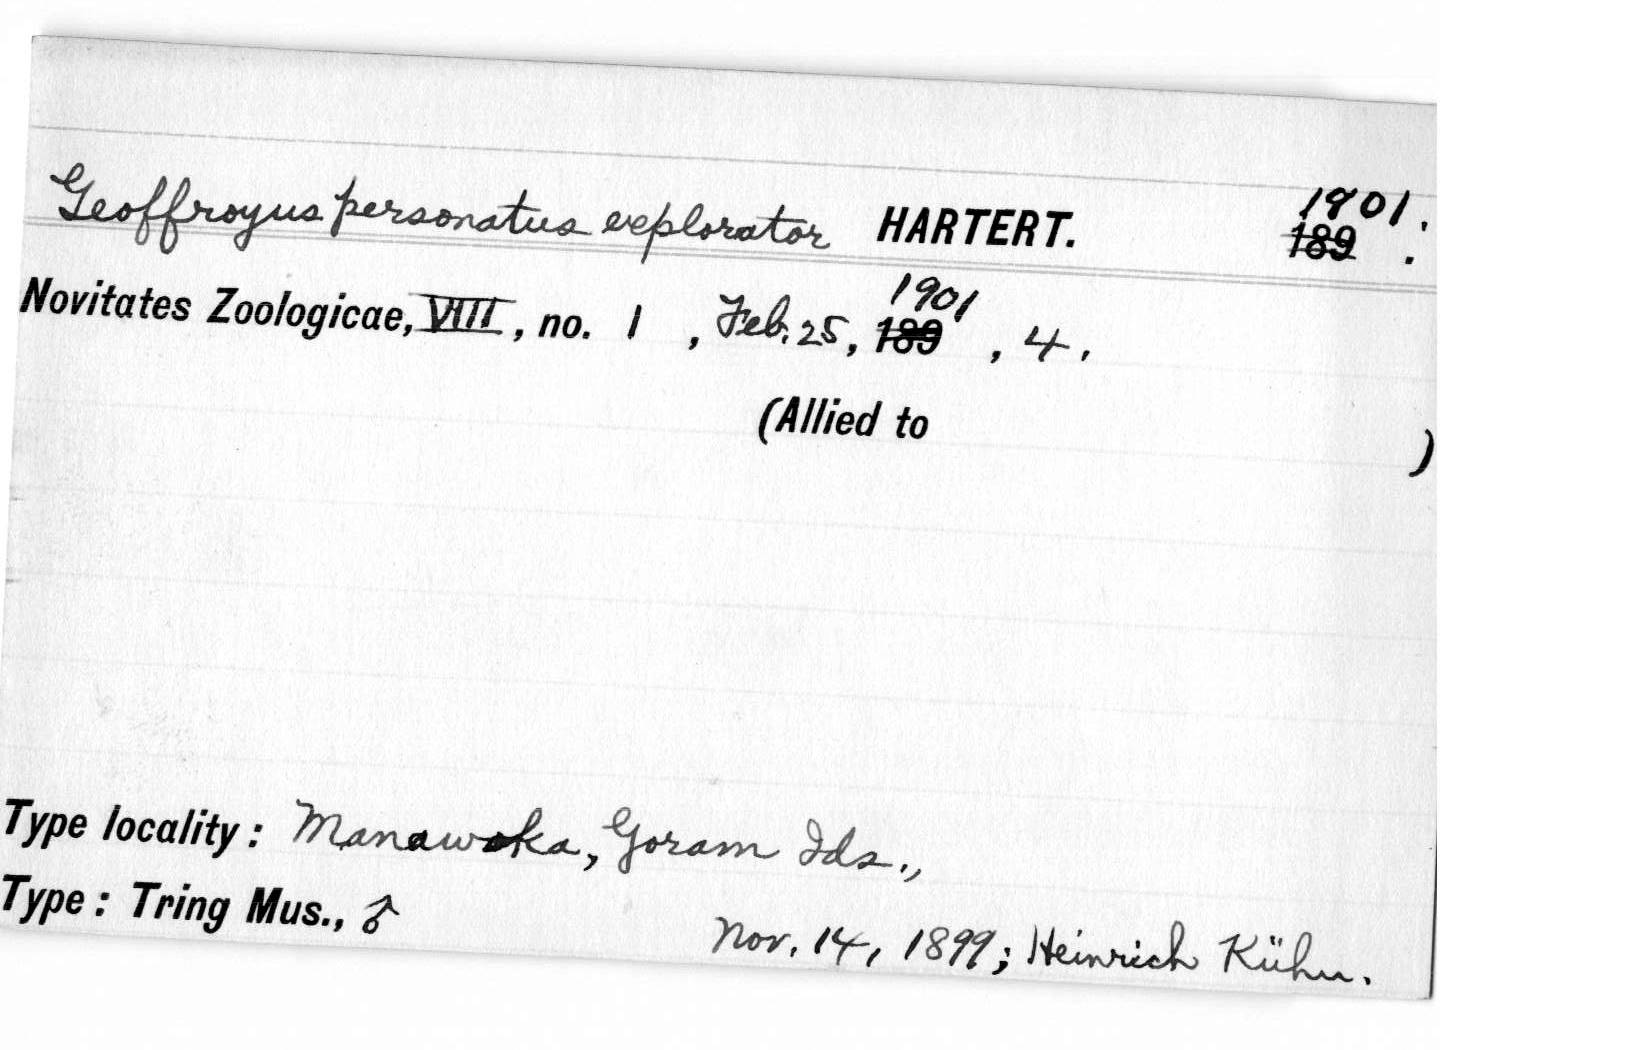 Geoffroyus personatus explorator HARTERT. 1901.
189 .
Novitates Zoologicae, VIII, no. 1, Feb. 25, 189 1901, 4.
(Allied to )
Type locality: Manawoka, Goram Ids.,
Type: Tring Mus., ♂ Nov. 14, 1899; Heinrich Kühn.